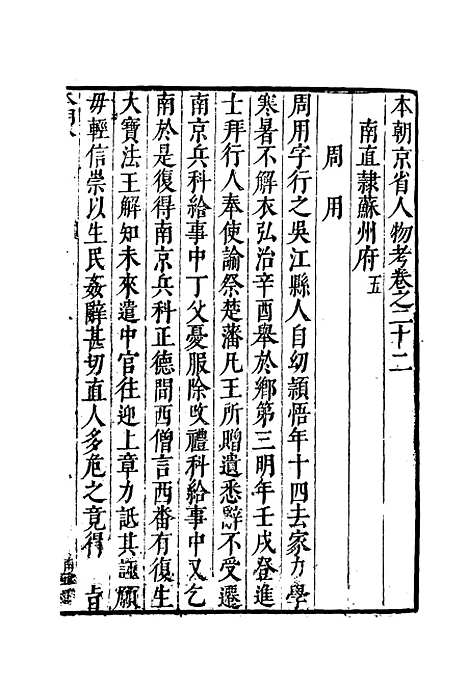 本朝京省人物考卷之二十二
南直隸蘇州府五
周用
周用字行之吳江縣人自幼頴悟年十四去家力學
寒暑不解衣弘治辛酉舉於鄉第三明年壬戌登進
士拜行人奉使諭祭楚藩凡王所贈遺悉辭不受遷
南京兵科給事中丁父憂服除改禮科給事中又乞
南於是復得南京兵科正德間西僧言西番有復生
大寶法王解知未來遣中官往迎上章力詆其誣願
毋輕信崇以生民姦辭甚切直人多危之竟得旨